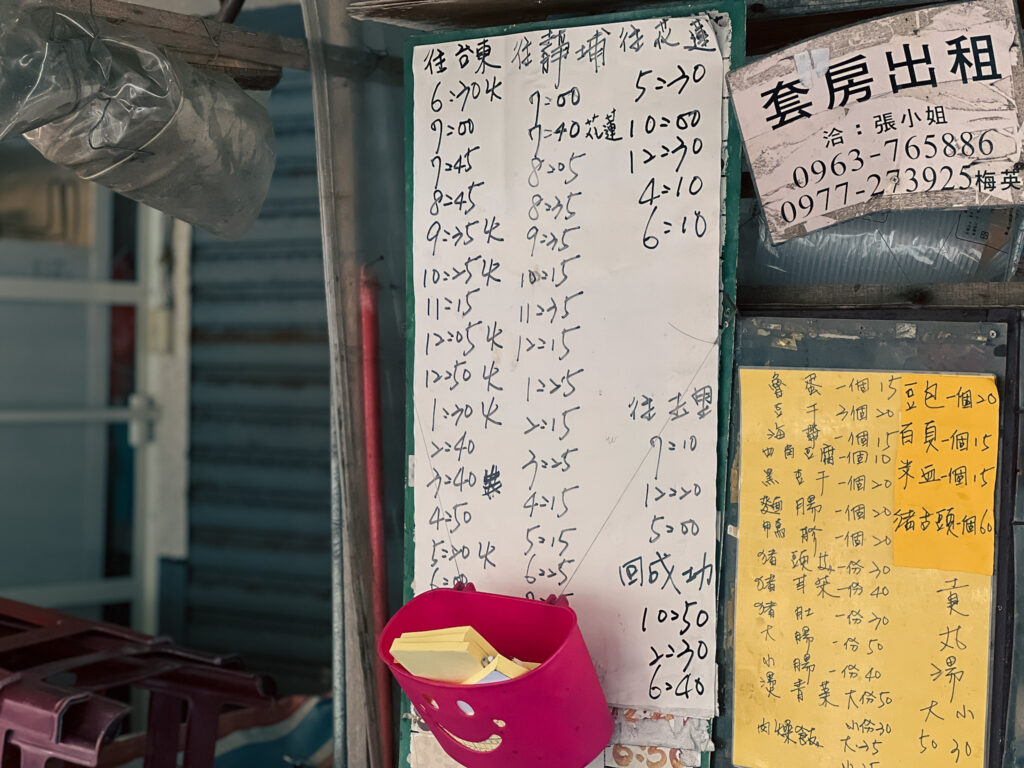 往台東
6:30火
7:00
7:45
8:45
9:35火
10:25火
11:15
12:05火
12:50火
1:30火
2:40
3:40
4:50
5:20火
往靜埔
7:00
7:40花蓮
8:05
8:35
9:35
10:15
11:35
12:15
1:25
2:15
3:25
4:15
5:15
6:25
往花蓮
5:30
10:00
12:30
4:10
6:10
7:10
12:20
5:00
回成功
10:50
2:30
6:40
套房出租
洽:張小姐
0963-765886
0977-273925梅英
魯蛋一個15
豆干3個20
海帶一個15
一個10
黑豆干一個20
麵腸一個20
鴨胗一個20
一份30
豬耳朵一份40
豬肚一份70
大腸一份50
小腸一份40
燙青菜大份50
小份30
肉燥飯大25
豆包一個20
百頁一個15
菜血一個15
豬舌頭一個60
貢丸湯
大小
50 30